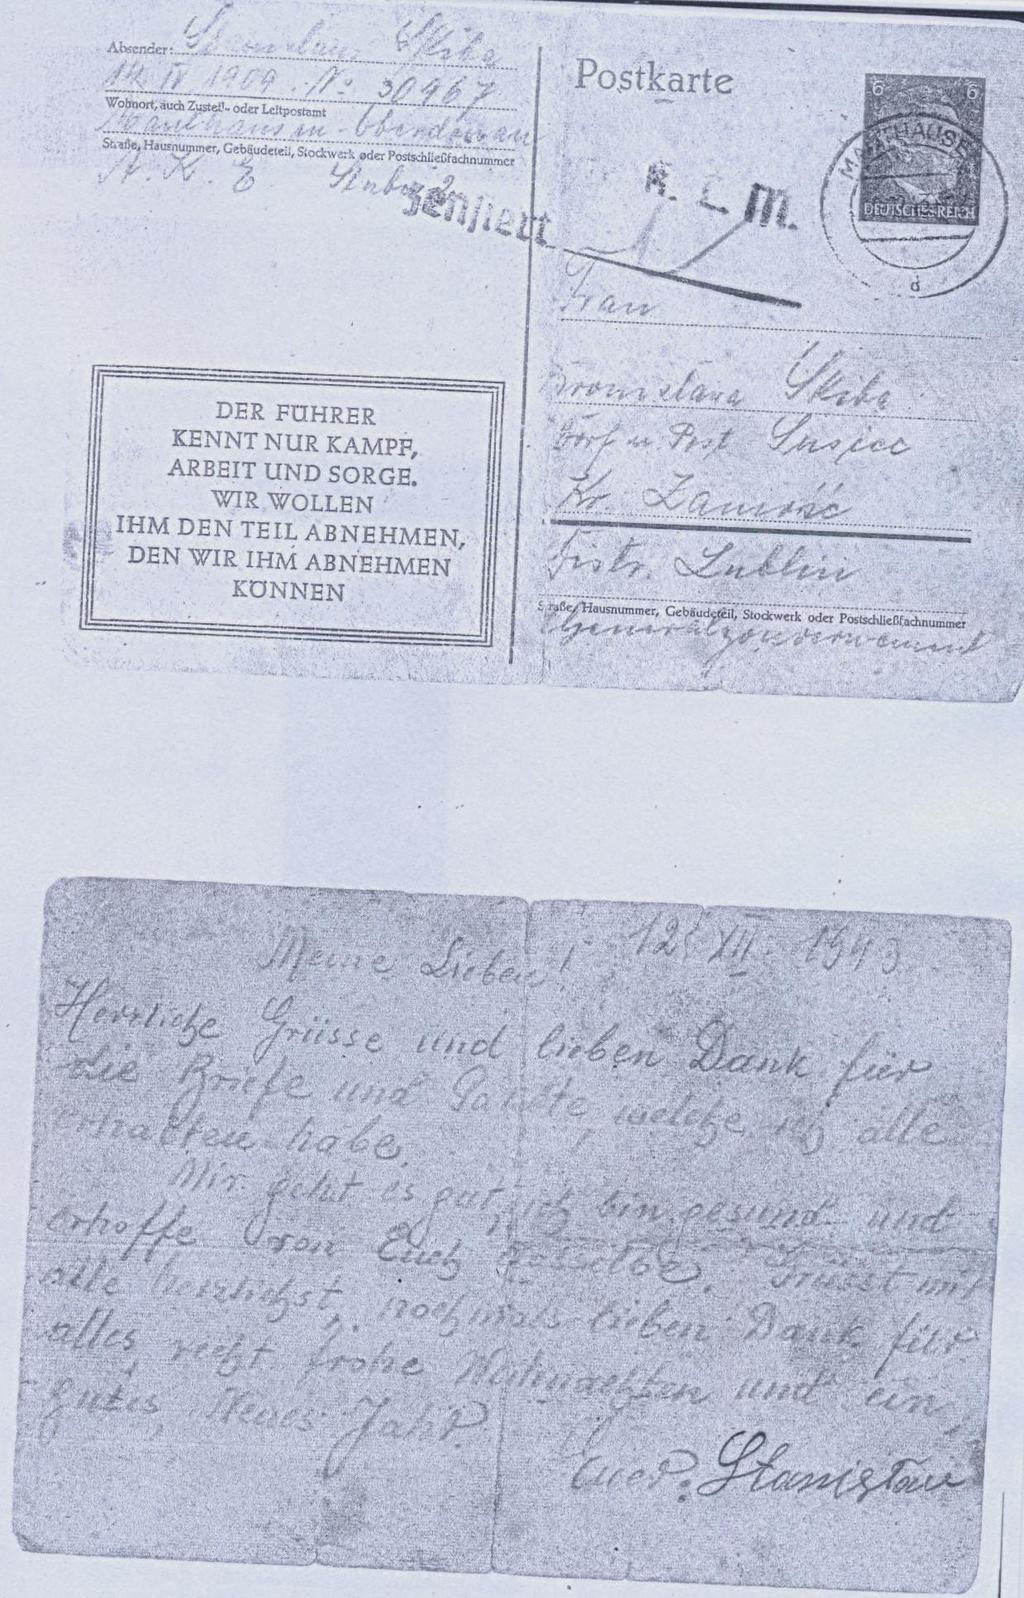 Absender: Stanislaus Skiba
14 IV 1909. No 30967
Wohnort, auch Zustell- oder Leitpostamt
Mauthausen - Oberdonau
Straße, Hausnummer, Gebäudeteil, Stockwerk oder Postschließfachnummer
Stube 2
zensiert
Postkarte
6 6
MAUTHAUSEN
DEUTSCHES REICH
d
K. L. M.
Frau
Bronislawa Skiba
Dorf u Post Susiec
Kr. Zamość
Distr. Lublin
Straße, Hausnummer, Gebäudeteil, Stockwerk oder Postschließfachnummer
Generalgouvernement
DER FÜHRER
KENNT NUR KAMPF,
ARBEIT UND SORGE.
WIR WOLLEN
IHM DEN TEIL ABNEHMEN,
DEN WIR IHM ABNEHMEN
KÖNNEN
Meine Lieben! 12. XII. 1943
Herzliche Grüsse und lieben Dank für
die Briefe und Pakete, welche ich alle
erhalten habe.
Mir geht es gut, ich bin gesund und
erhoffe von Euch dasselbe. Grüsst mir
alle herzlichst, nochmals lieben Dank für
alles, recht frohe Weihnachten und ein
gutes, Neues Jahr.
Euer. Stanisław